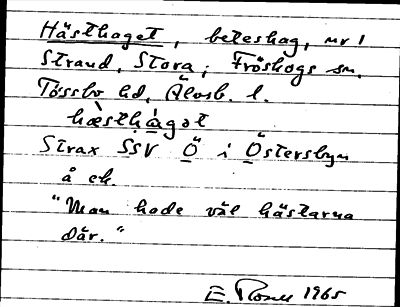 Hästhaget, beteshag, nr 1
Strand, Stora, Fröskogs sn.
Tössbo hd, Älvsb. l.
hæsthàgət
Strax SSV Ö i Östersbyn
å ek.
"Man hade väl hästarna
där."
E. 1965